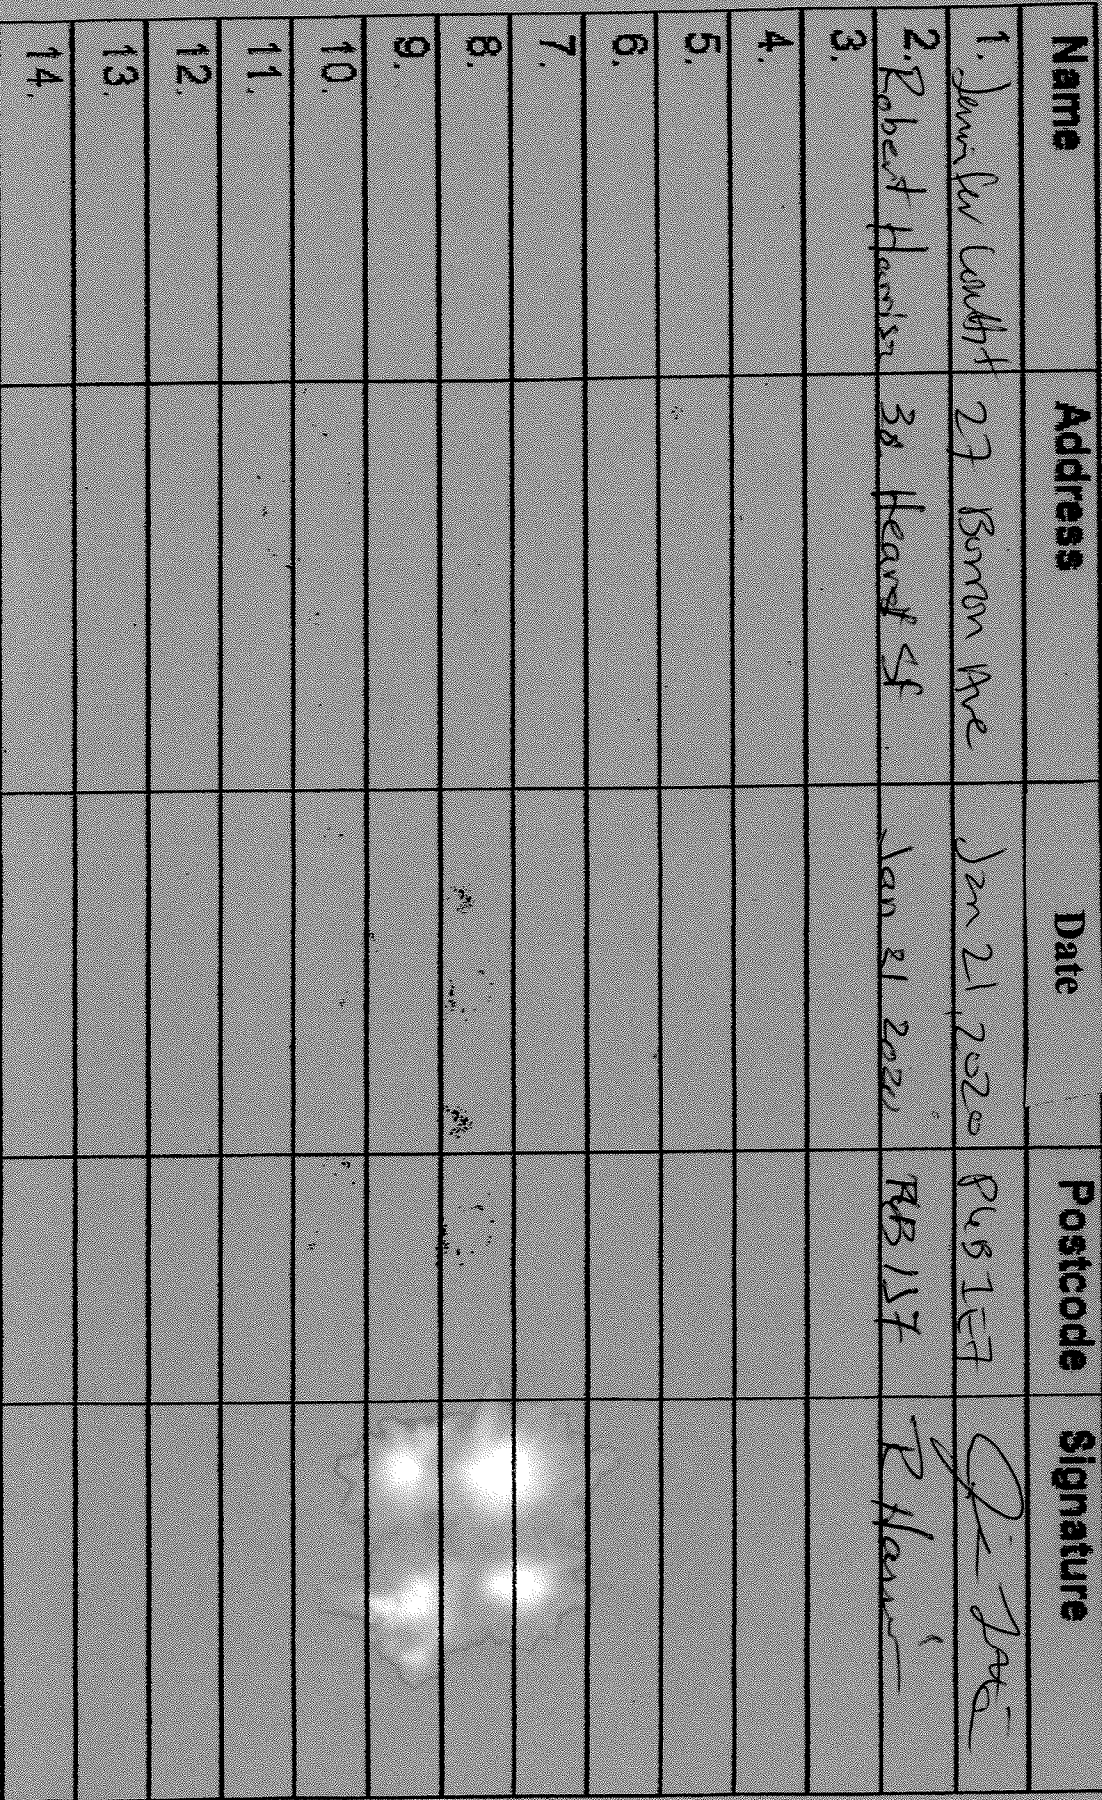 Name Address Date Postcode Signature
1. Jennifer 27 Burron Ave Jan 21, 2020 P6B 1E7
2. Robert Harrison 38 Hearst St Jan 21 2020 P6B 1S7 R Harri
3.
4.
5.
6.
7.
8.
9.
10.
11.
12.
13.
14.